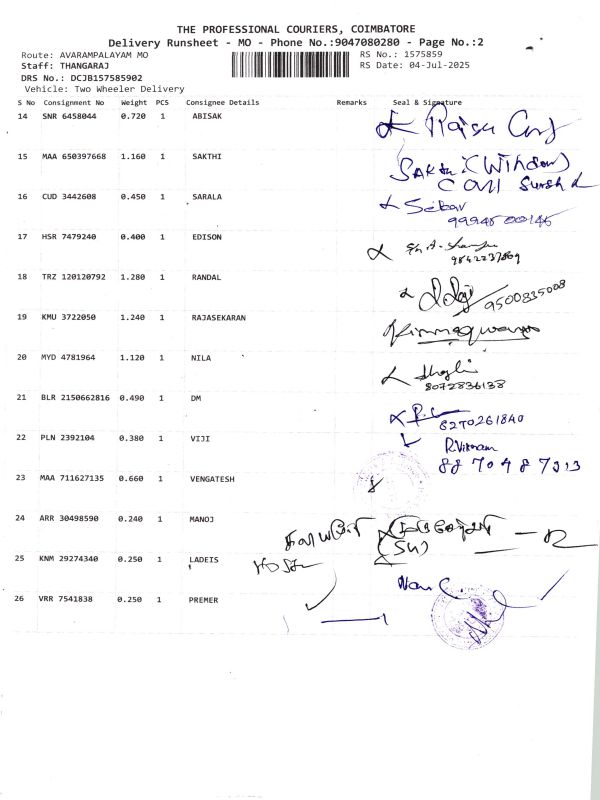 THE PROFESSIONAL COURIERS, COIMBATORE
Delivery Runsheet - MO - Phone No.:9047080280 - Page No.:2
Route: AVARAMPALAYAM MO
RS No.: 1575859
Staff: THANGARAJ
RS Date: 04-Jul-2025
DRS No.: DCJB157585902
Vehicle: Two Wheeler Delivery
S No Consignment No Weight PCS Consignee Details Remarks Seal & Signature
14 SNR 6458044 0.720 1 ABISAK
15 MAA 650397668 1.160 1 SAKTHI
16 CUD 3442608 0.450 1 SARALA
17 HSR 7479240 0.400 1 EDISON
9842237869
18 TRZ 120120792 1.280 1 RANDAL
9500835008
19 KMU 3722050 1.240 1 RAJASEKARAN
20 MYD 4781964 1.120 1 NILA
8072836138
21 BLR 2150662816 0.490 1 DM
8270261840
22 PLN 2392104 0.380 1 VIJI
R.Vikram
23 MAA 711627135 0.660 1 VENGATESH
24 ARR 30498590 0.240 1 MANOJ
25 KNM 29274340 0.250 1 LADEIS
26 VRR 7541838 0.250 1 PREMER